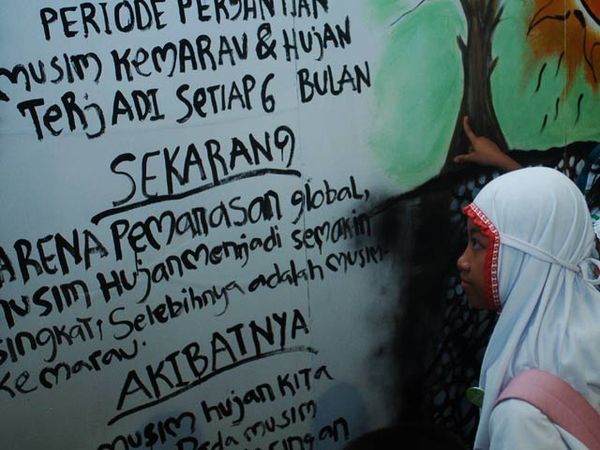 PERIODE PERGANTIAN
MUSIM KEMARAU & HUJAN
TERJADI SETIAP 6 BULAN
SEKARANG
ARENA PEMANASAN global,
musim Hujan menjadi semakin
singkat; Selebihnya adalah musim-
kemarau.
AKIBATNYA
musim hujan kita
pada musim